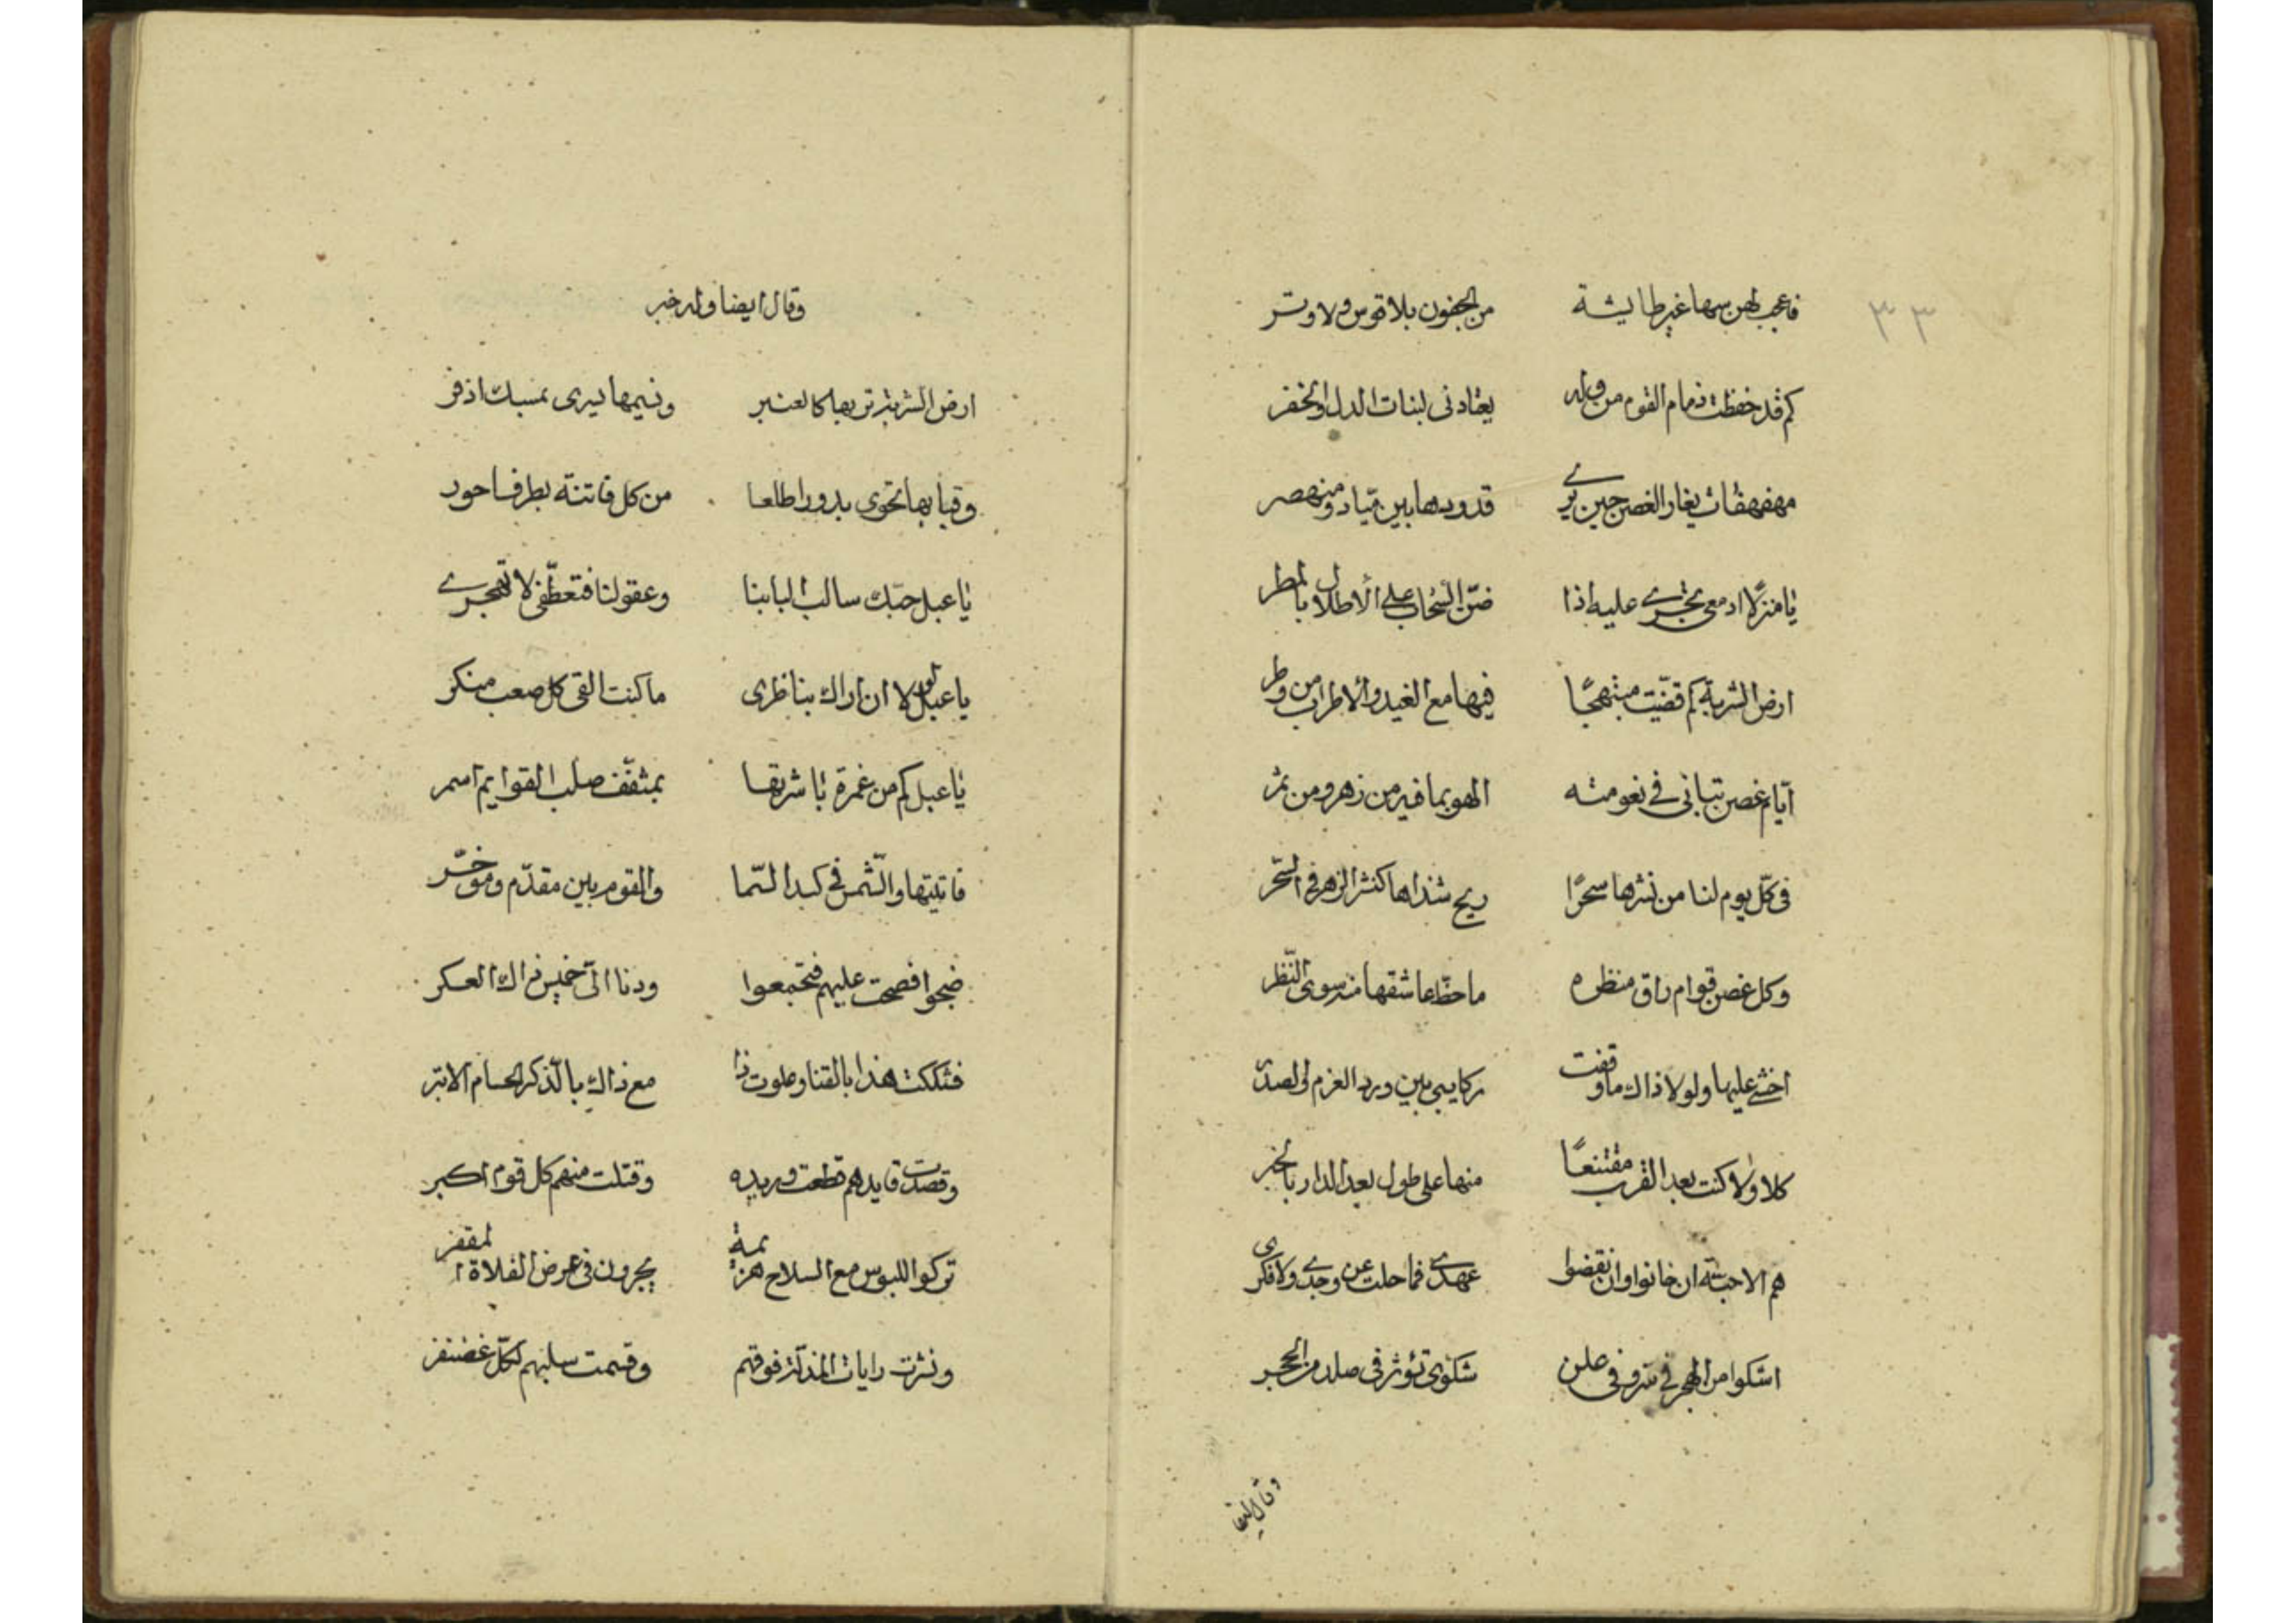 ٣٣
فاعجب لهن سهما غير طايشة من الجفون بلا قوس ولا وتر
كم قد حفظت ذمام القوم من وله يعتادنى لبنات الدل والخفر
مهفهفات يغار الغصن حين يرى قدودها بين ميّاد ومنهصر
يا منزلًا ادمعى تجرى عليه اذا ضنّ السّحاب على الأطلال بالمطر
ارض الشربة كم قضّيت مبتهجًا فيها مع الغيد والاطراب من وطر
ايّام غصن شبابى فى نعومته الهو بما فيه من زهر ومن ثمر
فى كلّ يوم لنا من نشرها سحرًا ريح شذاها كنشر الزهر فى السّحر
وكل غصن قوام راق منظره ما حظّ عاشقها منه سوى النّظر
اخشى عليها ولولا ذاك ما وقفت ركايبى بين ورد العزم والصدر
كلا ولا كنت بعد القرب مقتنعًا منها على طول بعد الدار بالخبر
هم الاحبّة ان خانوا وان نقضوا عهدى فما حلت عن وجدى ولا فكرى
اشكوا من الهجر فى سر وفى علن شكوى تؤثر فى صلد من الحجر
وقال ايضا
وقال ايضا وله خبر
ارض الشربة تربها كالعنبر ونسيمها يسرى بمسك اذفر
وقبابها تحوى بدورا طلعا من كل فاتنة بطرف احور
يا عبل حبّك سالب البابنا وعقولنا فتعطّفى لا تهجرى
يا عبل لولا ان اراك بناظرى ما كنت القى كل صعب منكر
يا عبل كم من غمرة باشرتها بمثقّف صلب القوايم اسمر
فاتيتها والشّمس فى كبد السّما والقوم بين مقدّم وموخّر
ضجوا فصحت عليهم فتجمعوا ودنا الىّ خميس ذاك العسكر
فشككت هذا بالقنا وعلوت ذا مع ذاك بالذّكر الحسام الابتر
وقصدت قايدهم قطعت وريده وقتلت منهم كل قوم اكبر
تركوا اللبوس مع السلاح هزيمة يجرون فى عرض الفلاة المقفر
ونشرت رايات المذلّة فوقهم وقسمت سلبهم لكلّ غضنفر